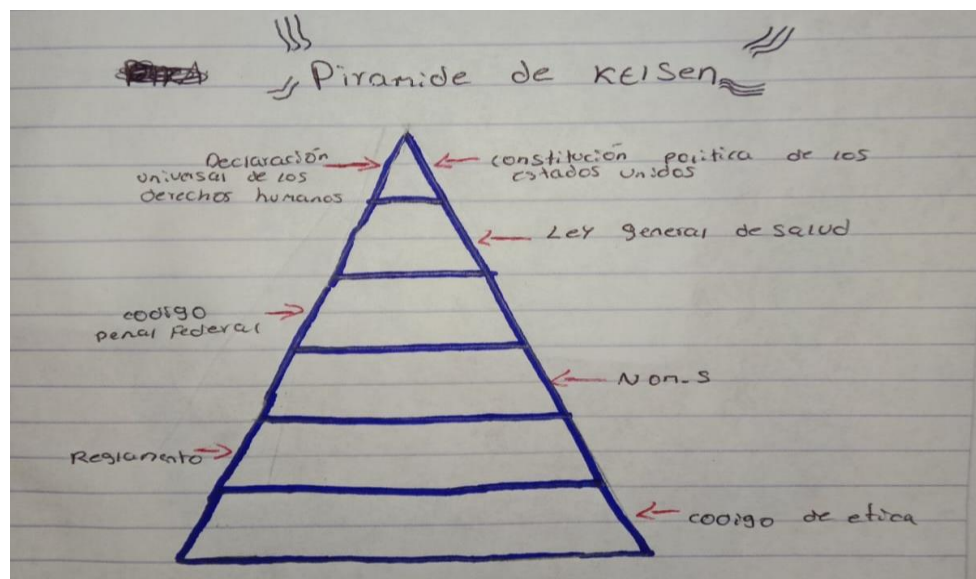 Piramide de Kelsen
Declaración
universal de los
derechos humanos
constitución politica de los
estados unidos
Ley general de salud
codigo
penal Federal
Nom-s
Reglamento
codigo de etica